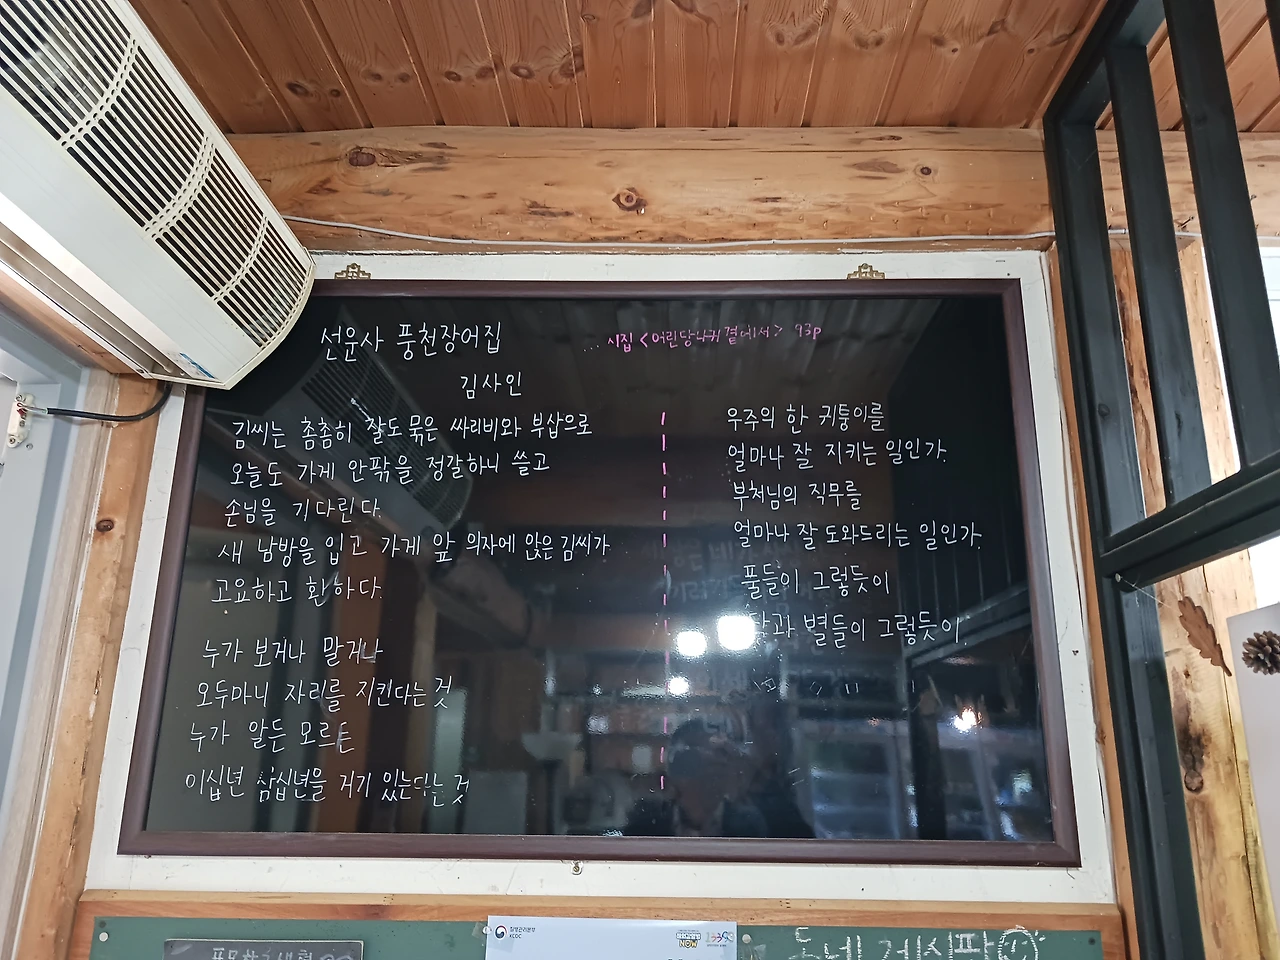 선운사 풍천장어집
... 시집 <어린당나귀 곁에서> 93p
김사인
김씨는 촘촘히 잘도 묶은 싸리비와 부삽으로
오늘도 가게 안팎을 정갈하니 쓸고
손님을 기다린다.
새 남방을 입고 가게 앞 의자에 앉은 김씨가
고요하고 환하다.
누가 보거나 말거나
오두마니 자리를 지킨다는 것
누가 알든 모르든
이십년 삼십년을 거기 있는다는 것
우주의 한 귀퉁이를
얼마나 잘 지키는 일인가.
부처님의 직무를
얼마나 잘 도와드리는 일인가.
풀들이 그렇듯이
달과 별들이 그렇듯이
질병관리본부
KCDC
NOW
1339
동네 게시판